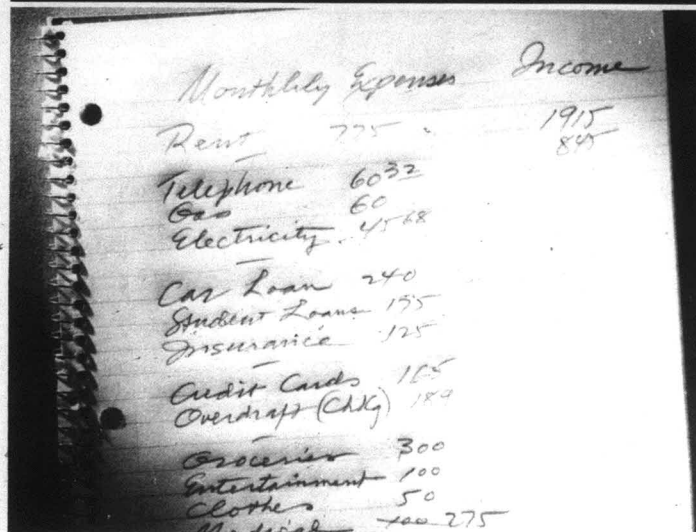 Monthlily Expenses Income
Rent 775 1915
845
Telephone 60 32
Gas 60
Electricity 45 68
Car Loan 240
Student Loans 155
Insurance 125
Credit Cards 165
Overdraft (Chkg) 189
Groceries 300
Entertainment 100
Clothes 50
Medical 100 275